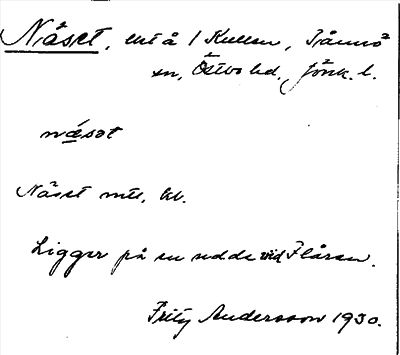 Näset, ut å 1 Kullen, Tånnö
sn, Östbo hd, Jönk. l.
næsət
Näset mtl, kt.
Ligger på en udde vid Flåren.
Fritz Andersson 1930.